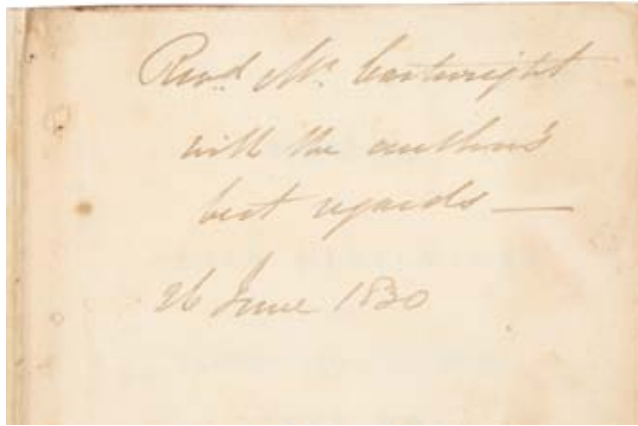 Revd. Mr. Cartwright
with the author's
best regards —
26 June 1830